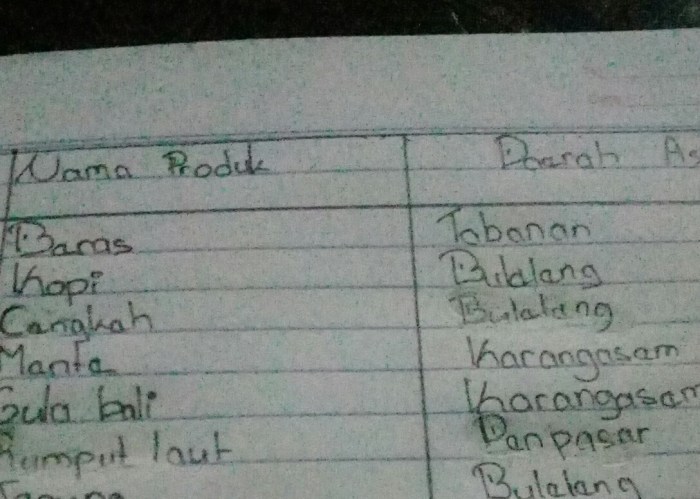 Nama Produk Daerah As
Baras Tabanan
Khopi Bulalang
Cangkah Bulalang
Manfa Karangasam
Gula bali Karangasam
Rumput laut Danpasar
Bulalang